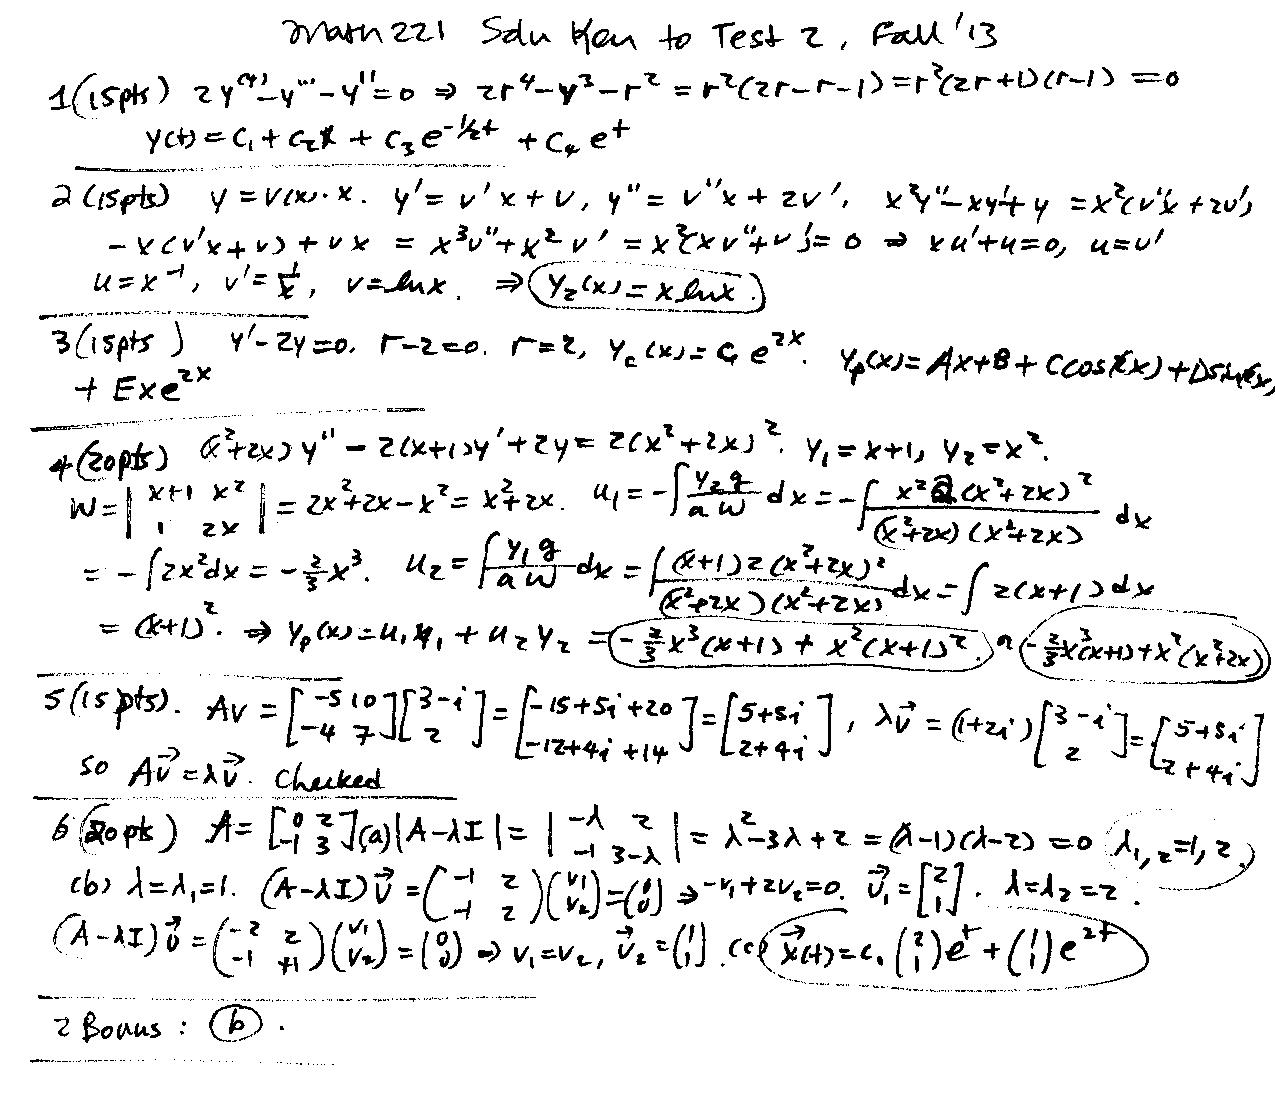 Math 221 Soln Key to Test 2, Fall '13
1 (15pts) 2y⁽⁴⁾ - y''' - y'' = 0 ⇒ 2r⁴ - r³ - r² = r²(2r - r - 1) = r²(2r+1)(r-1) = 0
y(t) = c₁ + c₂t + c₃e^{-1/2t} + c₄e^t
2 (15pts) y = v(x)·x. y' = v'x + v, y'' = v''x + 2v', x²y'' - xy' + y = x²(v''x + 2v')
- x(v'x + v) + vx = x³v'' + x²v' = x²(xv'' + v') = 0 ⇒ xu' + u = 0, u = v'
u = x⁻¹, v' = 1/x, v = ln x. ⇒ y₂(x) = x ln x.
3 (15pts) y' - 2y = 0. r - 2 = 0. r = 2, y_c(x) = c₁e^{2x}. y_p(x) = Ax + B + C cos( x) + D sin( x)
+ Exe^{2x}
4 (20pts) (x²+2x)y'' - 2(x+1)y' + 2y = 2(x²+2x)². y₁ = x+1, y₂ = x².
W = | x+1 x² ; 1 2x | = 2x²+2x - x² = x²+2x. u₁ = -∫ y₂g/aW dx = -∫ x² 2(x²+2x)² / (x²+2x)(x²+2x) dx
= -∫2x²dx = -2/3 x³. u₂ = ∫ y₁g/aW dx = ∫ (x+1)2(x²+2x)² / (x²+2x)(x²+2x) dx = ∫2(x+1)dx
= (x+1)². ⇒ y_p(x) = u₁y₁ + u₂y₂ = -2/3 x³(x+1) + x²(x+1)². or -2/3 x³(x+1) + x²(x²+2x)
5 (15pts). Av = [-5 10; -4 7][3-i; 2] = [-15+5i+20; -12+4i+14] = [5+5i; 2+4i], λv⃗ = (1+2i)[3-i; 2] = [5+5i; 2+4i]
so Av⃗ = λv⃗. Checked
6 (20pts) A = [0 2; -1 3] (a) |A-λI| = | -λ 2; -1 3-λ | = λ²-3λ+2 = (λ-1)(λ-2) = 0 λ₁,₂ = 1, 2.
(b) λ = λ₁ = 1. (A-λI)v⃗ = (-1 2; -1 2)(v₁; v₂) = (0; 0) ⇒ -v₁+2v₂ = 0. v⃗₁ = [2; 1]. λ = λ₂ = 2.
(A-λI)v⃗ = (-2 2; -1 +1)(v₁; v₂) = (0; 0) ⇒ v₁ = v₂, v⃗₂ = (1; 1). (c) x⃗(t) = c₁(2; 1)e^t + (1; 1)e^{2t}
2 Bonus: (b).